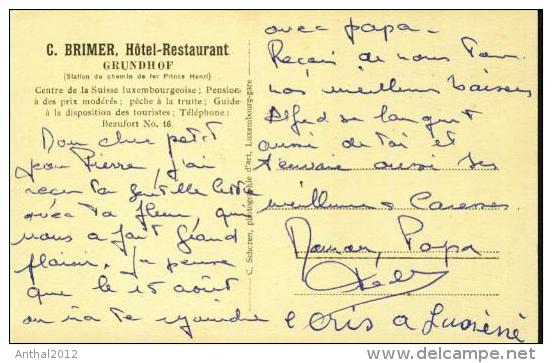 C. BRIMER, Hôtel-Restaurant
GRUNDHOF
(Station du chemin de fer Prince Henri)
Centre de la Suisse luxembourgeoise; Pension
à des prix modérés; pêche à la truite; Guide
à la disposition des touristes; Téléphone:
Beaufort No. 16.
Mon cher petit
Jean Pierre, j'ai
reçu ta gentille lettre
avec ta fleur, qui
nous a fait grand
plaisir. Je pense
que le 15 août
on ira te rejoindre
C. Scherzen, photographie d'art, Luxembourg-gare
avec papa.
Reçois de nous tous
nos meilleurs baisers
Alfred se languit
aussi de toi et
t'envoie aussi ses
meilleures caresses
Maman, Papa
écris à
Anthal2012
www.delcampe.net